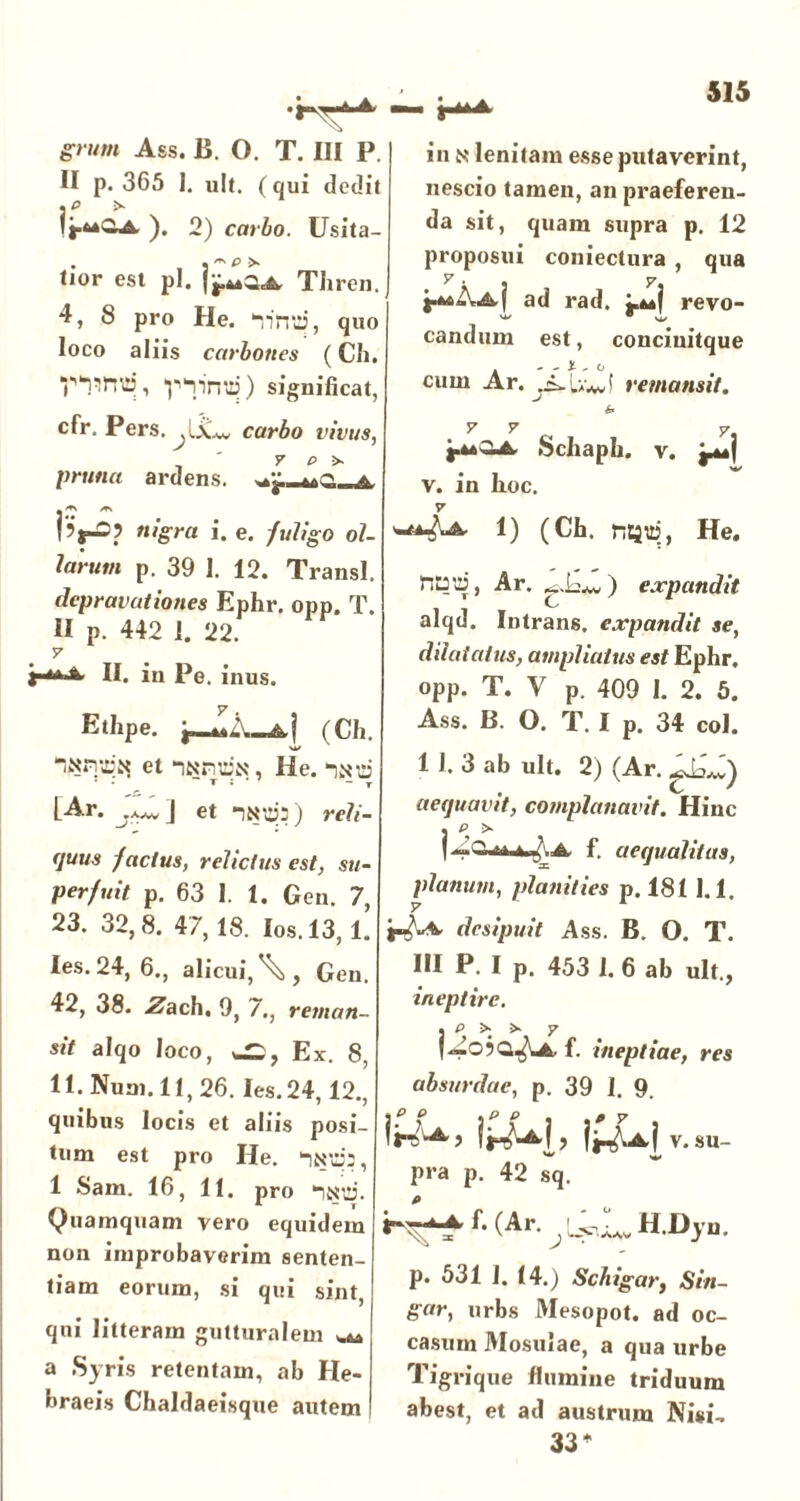 515
ܫܚܪ — ܫܝܓܪ.
grum Ass. B. O. T. III P.
II p. 365 l. ult. (qui dedit
ܫܘܚܪܐ). 2) carbo. Usita-
tior est pl. ܫܘܚܪ̈ܐ Thren.
4, 8 pro He. שחור, quo
loco aliis carbones (Ch.
שחורין, שחורין) significat,
cfr. Pers. سكار carbo vivus,
pruna ardens. ܫܘܚܪܝ
ܕܩܕܪ̈ܐ nigra i. e. fuligo ol-
larum p. 39 l. 12. Transl.
depravationes Ephr. opp. T.
II p. 442 l. 22.
ܫܚܪ II. in Pe. inus.
Ethpe. ܐܫܬܚܪ (Ch.
אשתאר et אשתאר, He. שאר
[Ar. سئر] et נשאר) reli-
quus factus, relictus est, su-
perfuit p. 63 l. 1. Gen. 7,
23. 32,8. 47,18. Ios.13,1.
Ies.24, 6., alicui, ܠ, Gen.
42, 38. Zach. 9, 7., reman-
sit alqo loco, ܒ, Ex. 8,
11. Num. 11, 26. Ies.24,12.,
quibus locis et aliis posi-
tum est pro He. נשאר,
1 Sam. 16, 11. pro שאר.
Quamquam vero equidem
non improbaverim senten-
tiam eorum, si qui sint,
qui litteram gutturalem ܚ
a Syris retentam, ab He-
braeis Chaldaeisque autem
in א lenitam esse putaverint,
nescio tamen, an praeferen-
da sit, quam supra p. 12
proposui coniectura, qua
ܐܫܬܚܪ ad rad. ܐܚܪ revo-
candum est, concinitque
cum Ar. استأخر remansit.
ܫܘܚܪ Schaph. v. ܐܚܪ
v. in hoc.
ܫܛܚ 1) (Ch. שטח, He.
שטח, Ar. سطح) expandit
alqd. Intrans. expandit se,
dilatatus, ampliatus est Ephr.
opp. T. V p. 409 l. 2. 5.
Ass. B. O. T. I p. 34 col.
1 l. 3 ab ult. 2) (Ar. سطح)
aequavit, complanavit. Hinc
ܫܛܝܚܘܬܐ f. aequalitas,
planum, planities p. 181 l.1.
ܫܛܪ desipuit Ass. B. O. T.
III P. I p. 453 l. 6 ab ult.,
ineptire.
ܫܛܘܗܘܬܐ f. ineptiae, res
absurdae, p. 39 l. 9.
ܫܛܪܐ, ܐܫܛܪܐ, ܐܫܛܪܐ v. su-
pra p. 42 sq.
ܫܝܓܪ f. (Ar. سنجار H.Dyn.
p. 531 l. 14.) Schigar, Sin-
gar, urbs Mesopot. ad oc-
casum Mosulae, a qua urbe
Tigrique flumine triduum
abest, et ad austrum Nisi-
33*